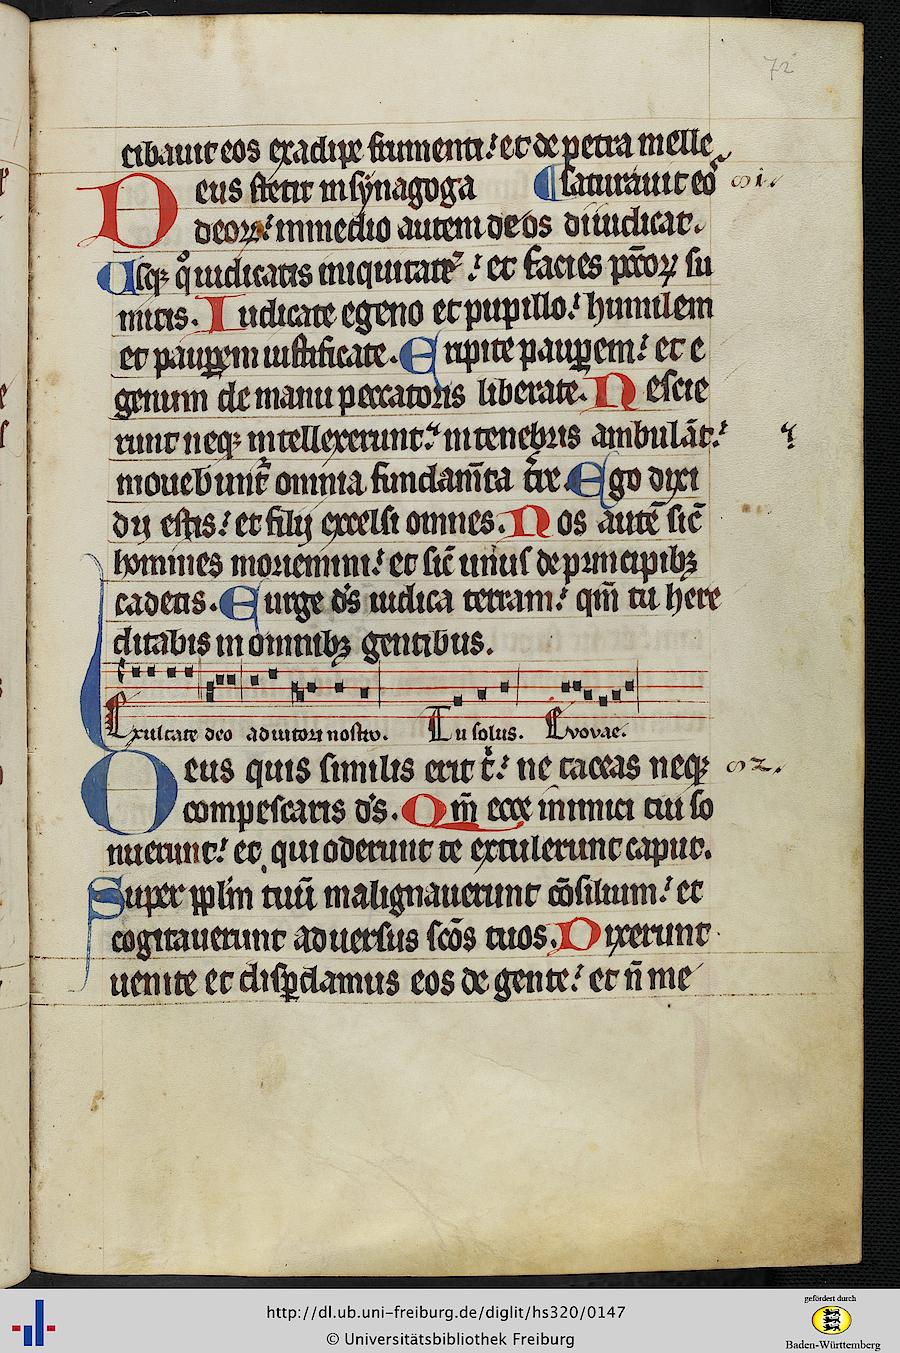 72
cibauit eos exadipe frumenti: et de petra melle
Deus stetit in synagoga saturauit eos 81.
deorꝝ: in medio autem deos diiudicat.
Usqꝫ qͦ iudicatis iniquitatē: et facies pctōꝝ su
mitis. Iudicate egeno et pupillo: humilem
et pauꝑem iustificate. Eripite pauꝑem: et e
genum de manu peccatoris liberate. Nescie
runt neqꝫ intellexerunt: in tenebris ambulāt:
mouebunt̄ omnia fundam̄ta t̄re. Ego dixi
dii estis: et filij excelsi omnes. Uos autē sic̄
homines moriemini: et sic̄ unus de principibꝫ
cadetis. Surge d̄s iudica terram: qm̄ tu here
ditabis in omnibꝫ gentibus.
Exultate deo adiutori nostro. Tu solus. Evovae.
Deus quis similis erit t͛: ne taceas neqꝫ 82.
compescaris d̄s. Qm̄ ecce inimici tui so
nuerunt: et qui oderunt te extulerunt caput.
Super pp̄lm tuū malignauerunt cōsilium: et
cogitauerunt aduersus sc̄os tuos. Dixerunt
uenite et disꝑdamus eos de gente: et n̄ me
http://dl.ub.uni-freiburg.de/diglit/hs320/0147
© Universitätsbibliothek Freiburg
gefördert durch
Baden-Württemberg